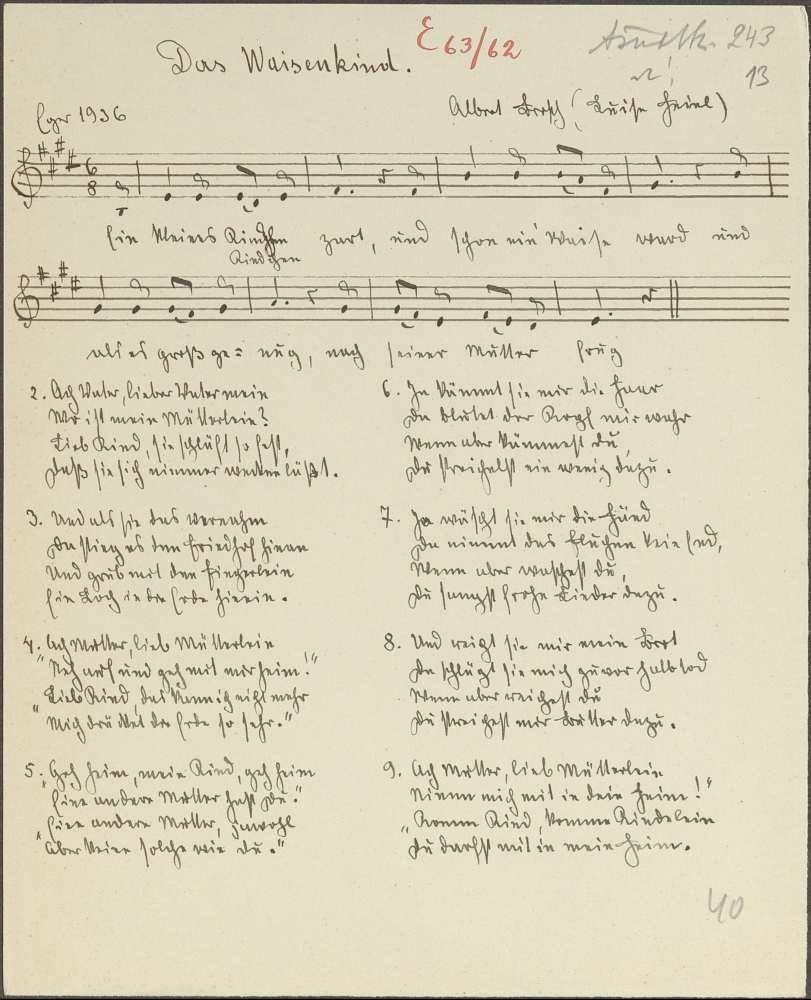 Das Waisenkind.
E 63/62
243
13
Eger 1936
Albert Brosch (Luise Heinl)
6
8
Ein kleines Kindchen zart, und schon ein' Waise ward und
Kindchen
als es groß ge= nug, nach seiner Mutter frug
2. Ach Vater, lieber Vater mein
Wo ist mein Mütterlein?
Lieb Kind, sie schläft so fest,
Daß sie sich nimmer wecken läßt.
3. Und als sie das vernahm
Da stieg es den Friedhof hinan
Und grub mit den Fingerlein
Ein Loch in die Erde hinein.
4. Ach Mutter, lieb Mütterlein
"Steh auf und geh mit mir heim!"
"Lieb Kind, das kann ich nicht mehr
Mich drücket die Erde so sehr."
5. "Geh heim, mein Kind, geh heim
Eine andere Mutter hast du."
"Eine andere Mutter, jawohl
Aber keine solche wie du."
6. Ja kämmt sie mir die Haar
Da blutet der Kopf mir wahr
Wenn aber kämmest du,
Du streichelst ein wenig dazu.
7. Ja wäscht sie mir die Händ
Da nimmt das Fluchen kein End,
Wenn aber waschest du,
Du sangst frohe Lieder dazu.
8. Und reicht sie mir mein Brot
Da schlägt sie mich zuvor halbtod
Wenn aber reichest du
Du streichest mir Butter dazu.
9. Ach Mutter, lieb Mütterlein
Nimm mich mit in dein Heim!"
"Komm Kind, komm Kindelein
Du darfst mit in mein Heim.
40